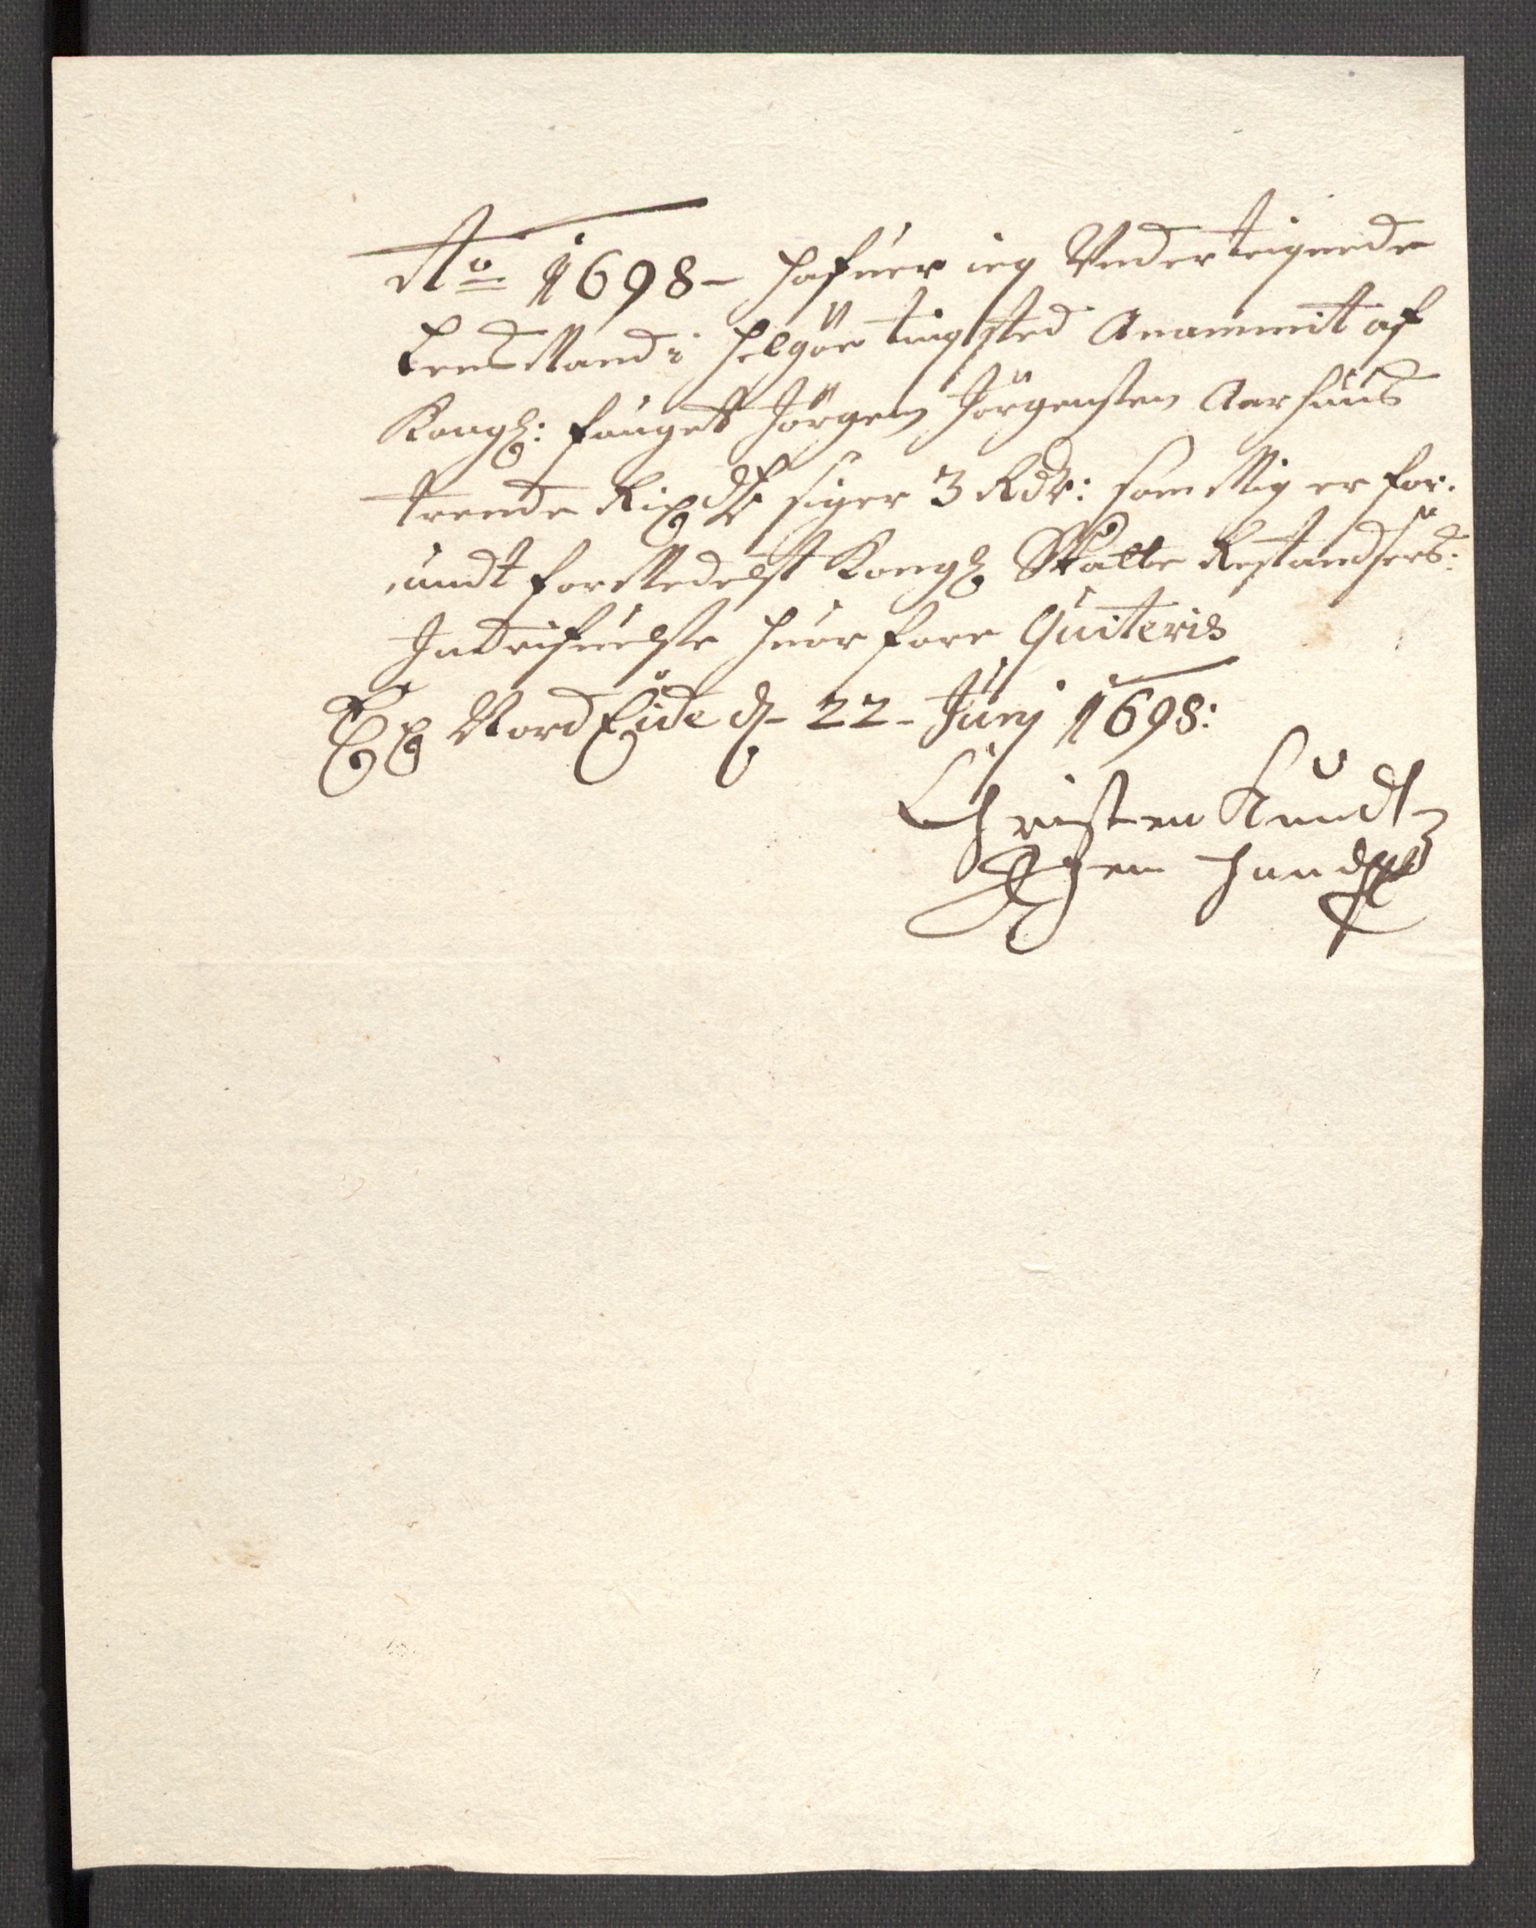 Ao 1698 – hafuer ieg Underteignede
Lensmand i Helgøe tingsted Anammit af
Kongl: fouget Jörgen Jörgensen Aarhuus
trende Rixdr siger 3 Rdr: som Mig er for-
undt formedelst Kongl Skatte Restandsers:
Inddrifuelse huor fore Quiteris
Ex Nord Eide d – 22 – Junj 1698:
Christen Knudt
Egen haand